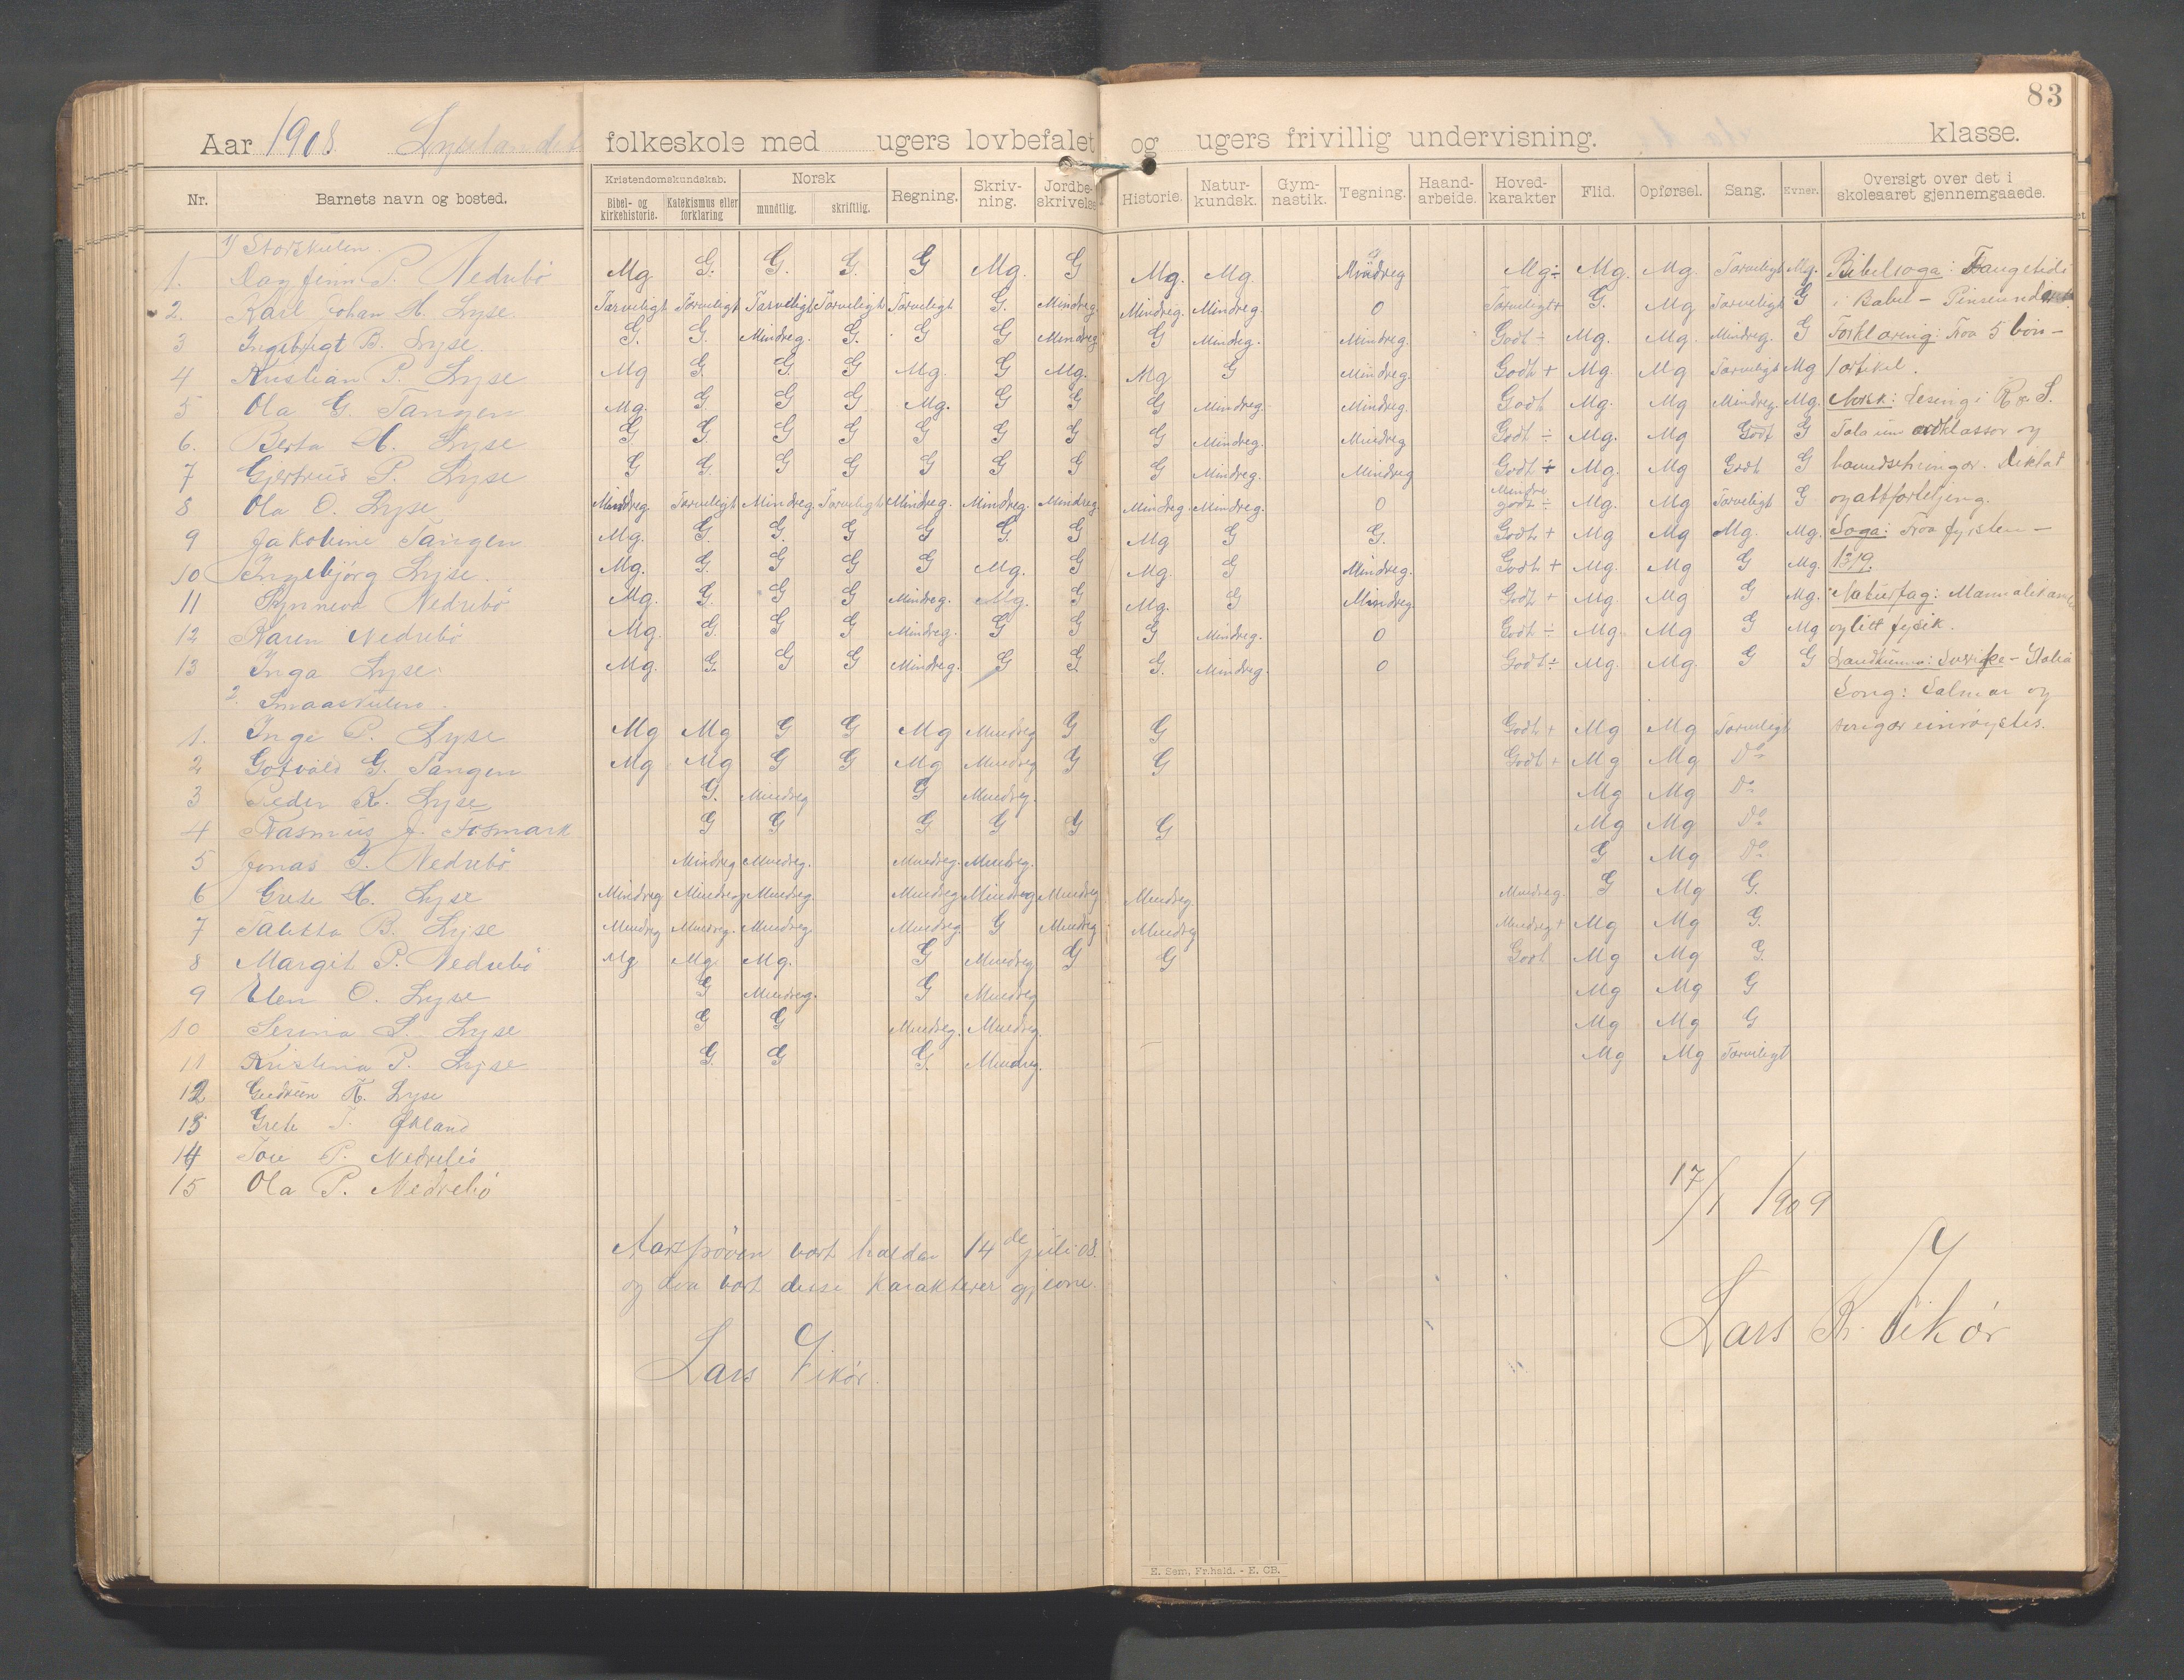 83
Aar 1908 Lyselandet folkeskole med ugers lovbefalet og ugers frivillig undervisning. klasse.
Nr. Barnets navn og bosted. Kristendomskundskab. Bibel- og kirkehistorie. Katekismus eller forklaring Norsk mundtlig. skriftlig. Regning. Skriv-ning. Jordbe-skrivelse Historie. Natur-kundsk. Gym-nastik. Tegning. Haand-arbeide. Hoved-karakter Flid. Opførsel. Sang. Evner. Oversigt over det i skoleaaret gjennemgaaede.
1) Storskulen.
1. Dagfinn P. Nedrebö Mg G. G. G. G Mg. G Mg. Mg. Mindreg Mg÷ Mg. Mg. Tarveligt Mg. Bibelsoga: Fangetidi
2. Karl Johan H. Lyse. Tarveligt Tarveligt Tarveligt Tarveligt Tarveligt G. Mindreg. Mindreg. Mindreg. 0 Tarveligt+ G. Mg Tarveligt G i Babel - Pinseundret.
3 Ingebrigt B. Lyse. G. G. Mindreg. G. G G Mindreg G Mindreg. Mindreg. Godt ÷ Mg. Mg. Mindreg. G Forklaring: Fraa 5 bön -
4 Kristian P. Lyse Mg G. G. G Mg. G Mg. Mg G Mindreg. Godt + Mg. Mg Tarveligt Mg 1 artikel.
5 Ola G. Tangen Mg. G. G G Mg. G G G Mindreg. Mindreg. Godt Mg. Mg Mindreg. Mg. Norsk: Lesing i R & S.
6. Berta H. Lyse G. G. G G G G G G Mindreg. Mindreg Godt ÷ Mg. Mg Godt G Tala um ordklassor og
7 Gjertrud P. Lyse G G. G G G G G G Mindreg. Mindreg Godt ÷ Mg. Mg Godt G hovudsetningar. Diktat
8 Ola O. Lyse Mindreg. Tarveligt Mindreg. Tarveligt Mindreg. Mindreg. Mindreg Mindreg. Mindreg. 0 Mindre godt ÷ Mg. Mg Tarveligt G og attforteljing.
9 Jakobine Tangen Mg. G. G. G G G. G Mg G G. Godt + Mg Mg Mg. Mg. Soga: Fraa fyrsten -
10 Ingebjörg Lyse. Mg. G. G G G Mg. G Mg. G Mindreg. Godt + Mg. Mg G Mg. 1319.
11 Synneva Nedrebö Mg. G. G G Mindreg. Mg. G Mg. G Mindreg. Godt + Mg. Mg G Mg. Naturfag:
12 Karen Nedrebö Mg. G. G G Mindreg. G G G Mindreg. 0 Godt ÷ Mg. Mg G Mg og litt fysik.
13 Inga Lyse. Mg. G. G G Mindreg. G G. G. Mindreg. 0 Godt ÷ Mg. Mg. G G Landkunna: Sverike - Italia
2. Smaaskulen. Song: Salmar og
1. Inge P. Lyse Mg Mg G G Mg Mindreg G G Godt + Mg Mg Tarveligt songar einröystes.
2 Gotvald G. Tangen Mg Mg G G Mg Mindreg G G Godt + Mg Mg Do
3 Peder K. Lyse G. Mindreg G Mindreg. Mg Mg Do
4 Rasmus J. Fosmark G G G G G G Mg Mg Do
5 Jonas T. Nedrebö Mindreg Mindreg. Mindreg. Mindreg. G Mg Do
6 Grete H. Lyse Mindreg Mindreg Mindreg. Mindreg Mindreg Mindreg Mindreg. Mindreg. G Mg G.
7 Taletta B. Lyse Mindreg Mindreg. Mindreg. Mindreg G Mindreg Mindreg Mindreg + Mg Mg G.
8 Margit P. Nedrebö Mg Mg. Mg. G Mindreg G G Godt Mg Mg G.
9 Elen O. Lyse G Mindreg. G Mindreg Mg Mg G
10 Serina S. Lyse G G Mindreg. Mindreg. Mg Mg G
11 Kristina P. Lyse G. G G. Mindreg. Mg Mg Tarveligt
12 Gudrun K. Lyse
13 Grete T. Økland
14 Tore P. Nedrebö
15 Ola P. Nedrebö
Aarsprøven vart halden 14de juli 08.
og daa vart desse karakterer gjevne.
Lars Vikör.
17/1 1909
Lars Kr. Vikør
E. Sem, Fr.hald. - E. CB.